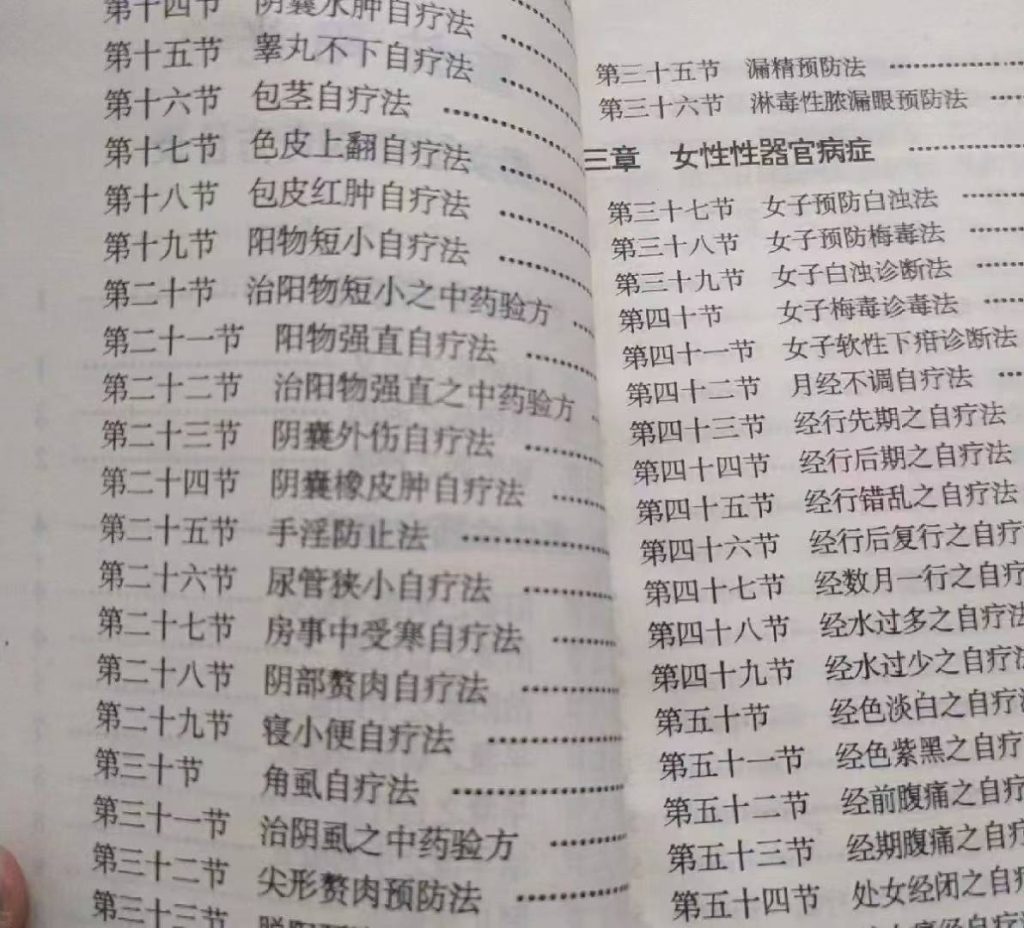 第十四节 阴囊水肿自疗法
第十五节 睾丸不下自疗法
第十六节 包茎自疗法
第十七节 色皮上翻自疗法
第十八节 包皮红肿自疗法
第十九节 阳物短小自疗法
第二十节 治阳物短小之中药验方
第二十一节 阳物强直自疗法
第二十二节 治阳物强直之中药验方
第二十三节 阴囊外伤自疗法
第二十四节 阴囊橡皮肿自疗法
第二十五节 手淫防止法
第二十六节 尿管狭小自疗法
第二十七节 房事中受寒自疗法
第二十八节 阴部赘肉自疗法
第二十九节 寝小便自疗法
第三十节 角虱自疗法
第三十一节 治阴虱之中药验方
第三十二节 尖形赘肉预防法
第三十三节
第三十五节 漏精预防法
第三十六节 淋毒性脓漏眼预防法
三章 女性性器官病症
第三十七节 女子预防白浊法
第三十八节 女子预防梅毒法
第三十九节 女子白浊诊断法
第四十节 女子梅毒诊毒法
第四十一节 女子软性下疳诊断法
第四十二节 月经不调自疗法
第四十三节 经行先期之自疗法
第四十四节 经行后期之自疗法
第四十五节 经行错乱之自疗法
第四十六节 经行后复行之自疗
第四十七节 经数月一行之自疗
第四十八节 经水过多之自疗法
第四十九节 经水过少之自疗法
第五十节 经色淡白之自疗法
第五十一节 经色紫黑之自疗
第五十二节 经前腹痛之自疗
第五十三节 经期腹痛之自疗
第五十四节 处女经闭之自疗